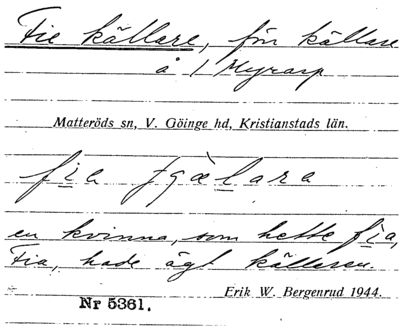 Fie källare, förr källare
å 1 Myrarp
Matteröds sn, V. Göinge hd, Kristianstads län.
fia
en kvinna, som hette fia,
Fia, hade ägt källaren.
Erik W. Bergenrud 1944.
Nr 5361.